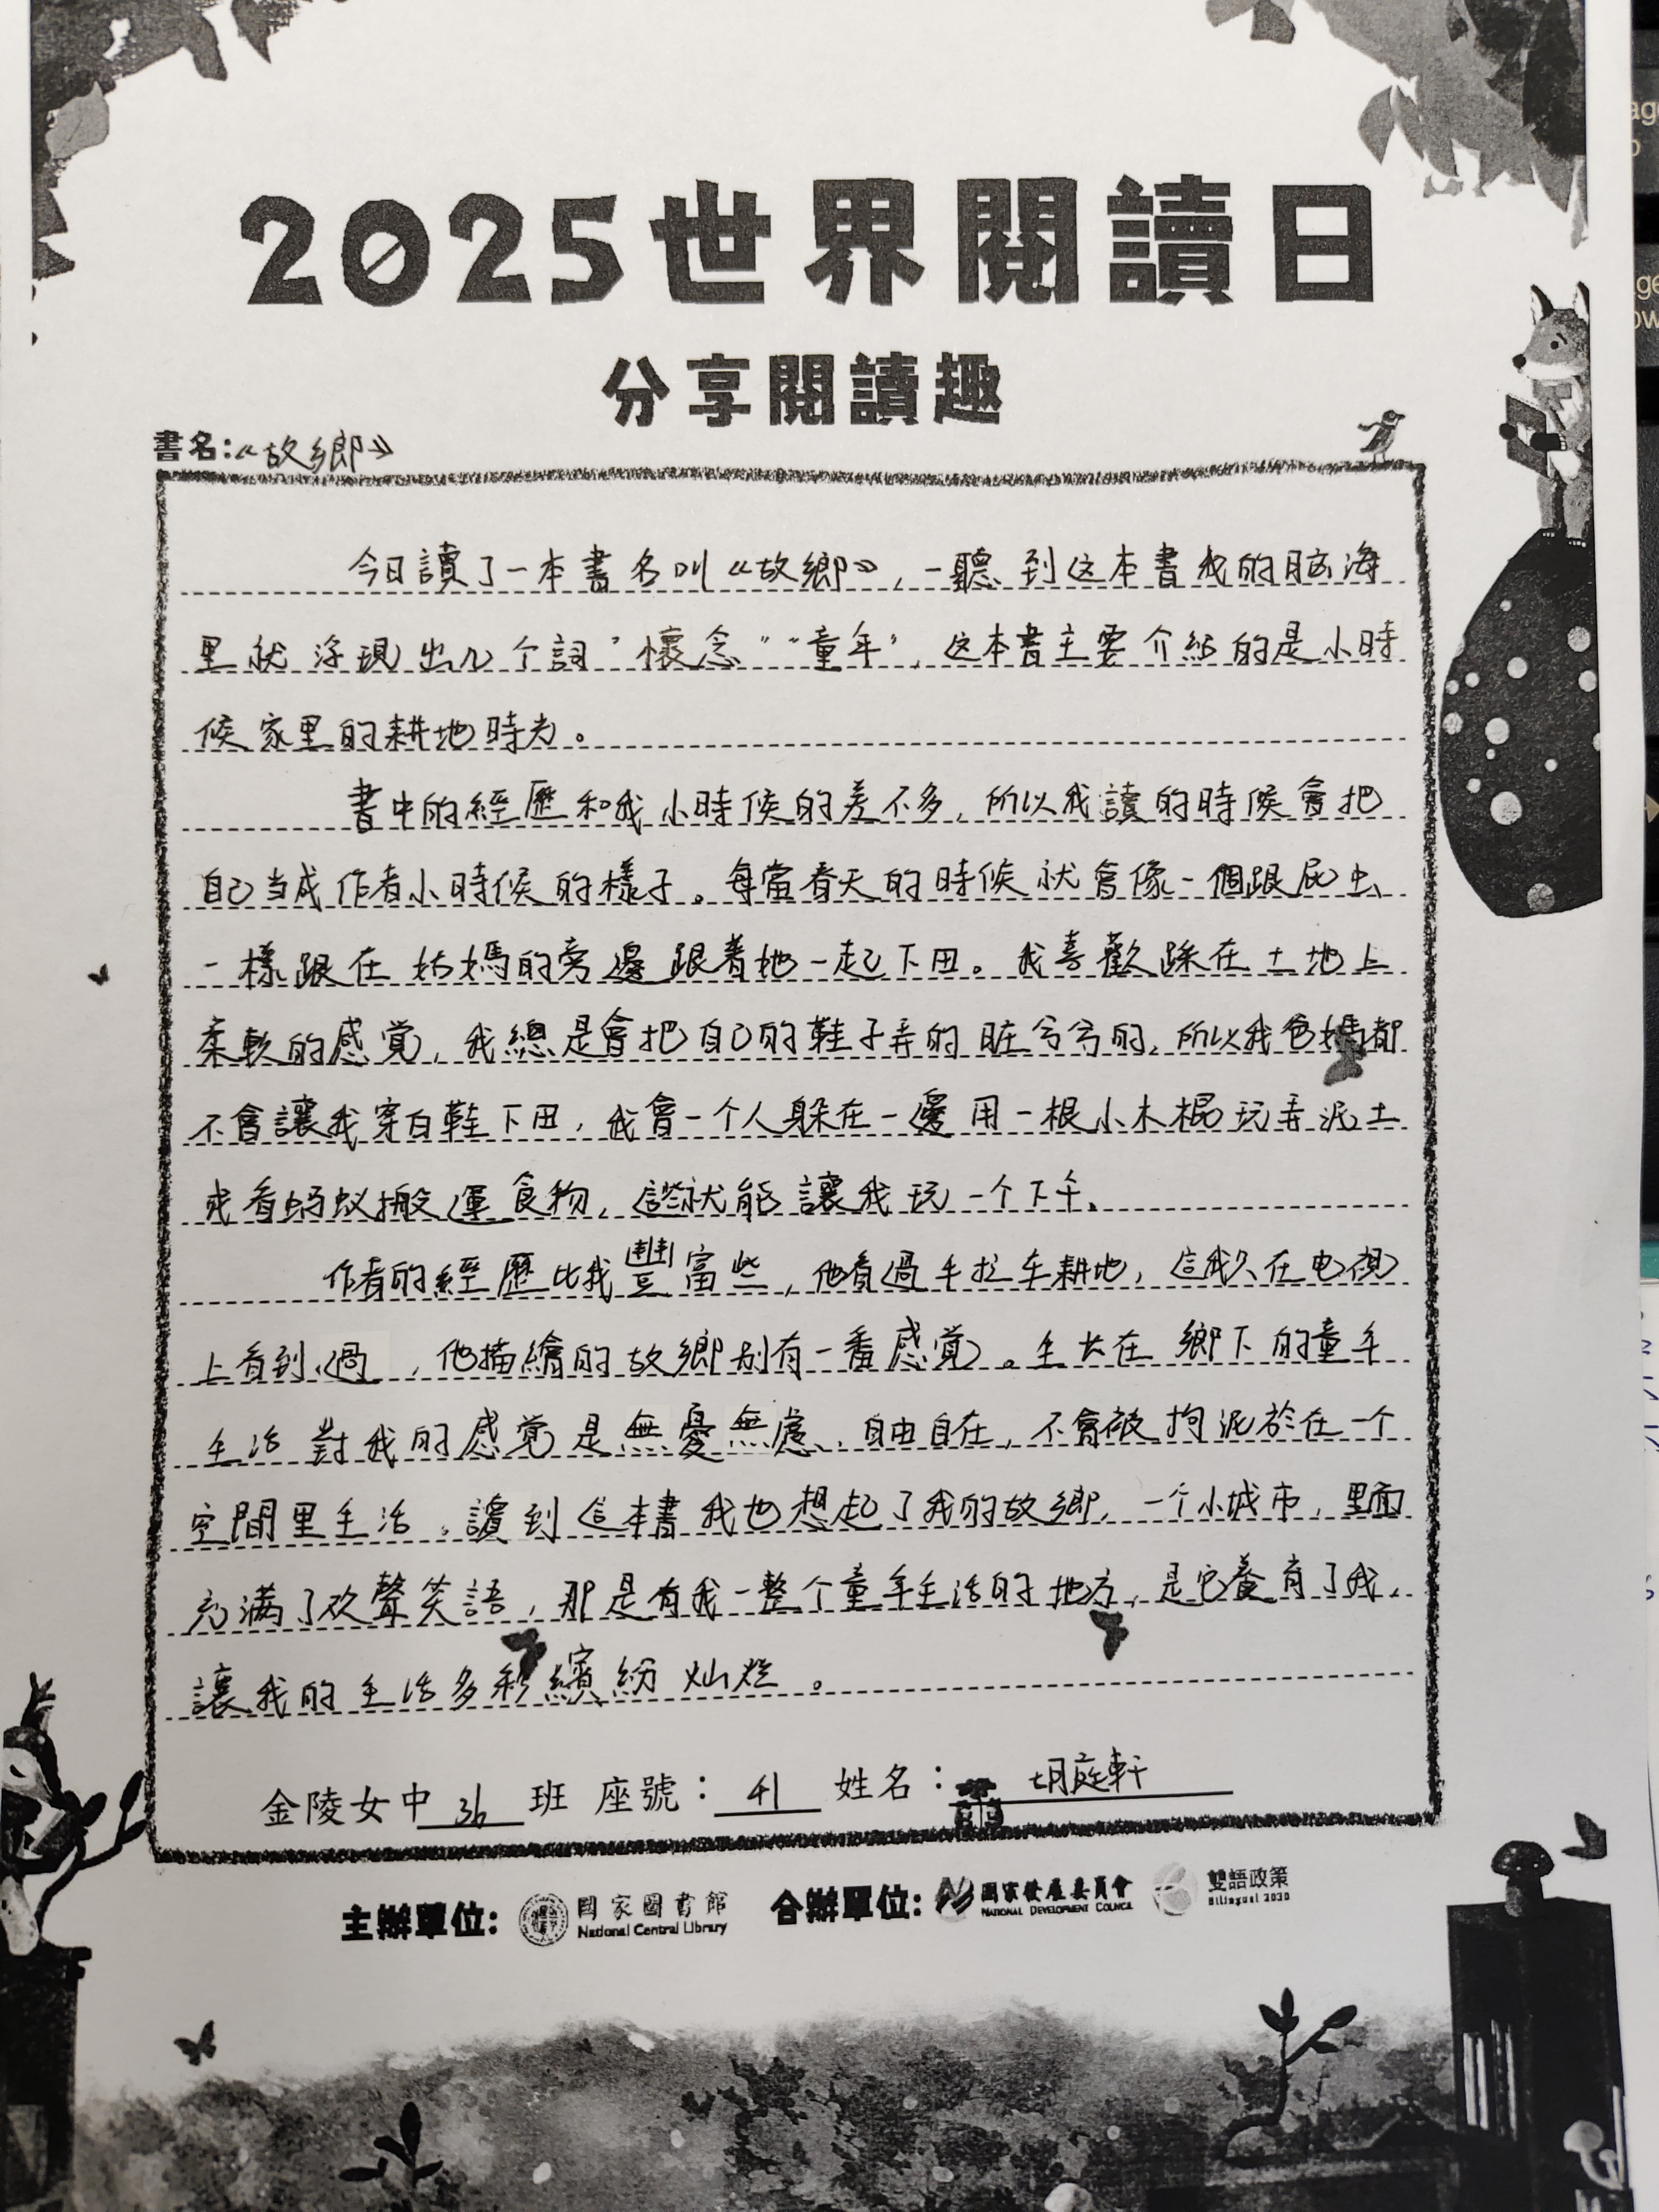 2025世界閱讀日
分享閱讀趣
書名:《故鄉》
今日讀了一本書名叫《故鄉》,一聽到这本書我的脑海
里就浮現出几个詞“懷念”“童年”,这本書主要介紹的是小時
候家里的耕地時光。
書中的經歷和我小時候的差不多,所以我讀的時候會把
自己当成作者小時候的樣子。每當春天的時候就會像一個跟屁虫
一樣跟在姑媽的旁邊跟着她一起下田。我喜歡踩在土地上
柔軟的感覚,我總是會把自己的鞋子弄的脏兮兮的,所以我爸媽都
不會讓我穿白鞋下田,我會一个人躲在一邊用一根小木棍玩弄泥土
或看蚂蚁搬運食物,這些就能讓我玩一个下午。
作者的經歷比我豐富些,他看過手拉车耕地,這我只在电視
上看到過,他描繪的故鄉别有一番感覚。生长在鄉下的童年
生活對我的感覚是無憂無慮、自由自在,不會被拘泥於在一个
空間里生活。讀到這本書我也想起了我的故鄉,一个小城市,里面
充滿了欢聲笑語,那是有我一整个童年生活的地方,是它養育了我,
讓我的生活多彩繽紛灿烂。
金陵女中 3b 班 座號: 41 姓名: 胡庭軒
主辦單位: 國家圖書館 合辦單位: 國家發展委員會 雙語政策
National Central Library NATIONAL DEVELOPMENT COUNCIL Bilingual 2030